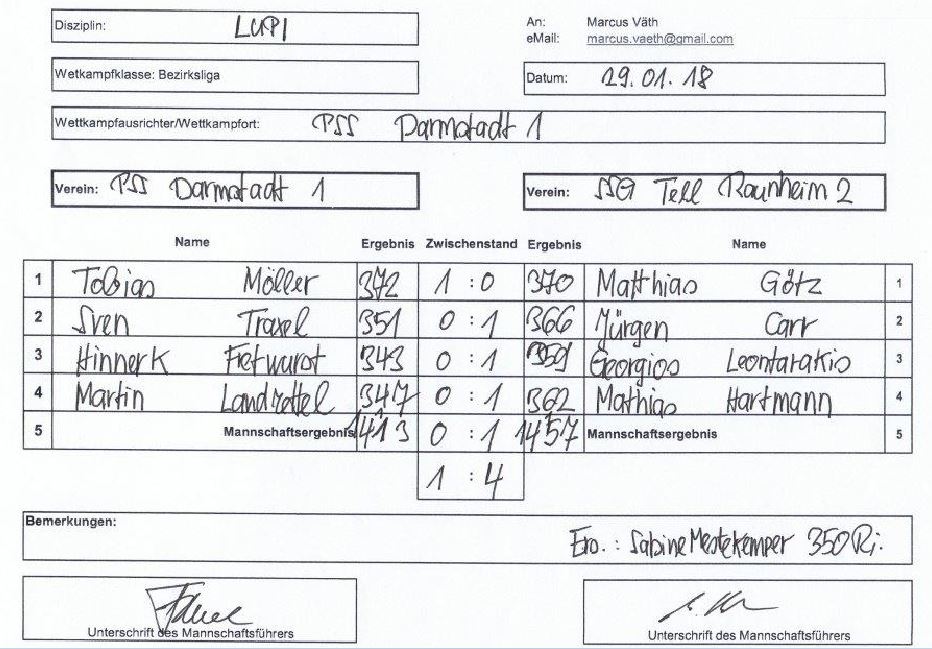 Disziplin: LUPI An: Marcus Väth
eMail: marcus.vaeth@gmail.com
Wetkampfklasse: Bezirksliga Datum: 29.01.18
Wettkampfausrichter/Wettkampfort: PSS Darmstadt 1
Verein: PSS Darmstadt 1 Verein: SSG Tell Raunheim 2
Name Ergebnis Zwischenstand Ergebnis Name
1 Tobias Möller 372 1 : 0 370 Matthias Götz 1
2 Sven Traxel 351 0 : 1 366 Jürgen Carr 2
3 Hinnerk Fretwurst 343 0 : 1 359 Georgios Leontarakis 3
4 Martin Landzettel 347 0 : 1 362 Mathias Hartmann 4
5 Mannschaftsergebnis 1413 0 : 1 1457 Mannschaftsergebnis 5
1 : 4
Bemerkungen:
Ers.: Sabine Mestekemper 350 Ri.
Unterschrift des Mannschaftsführers Unterschrift des Mannschaftsführers